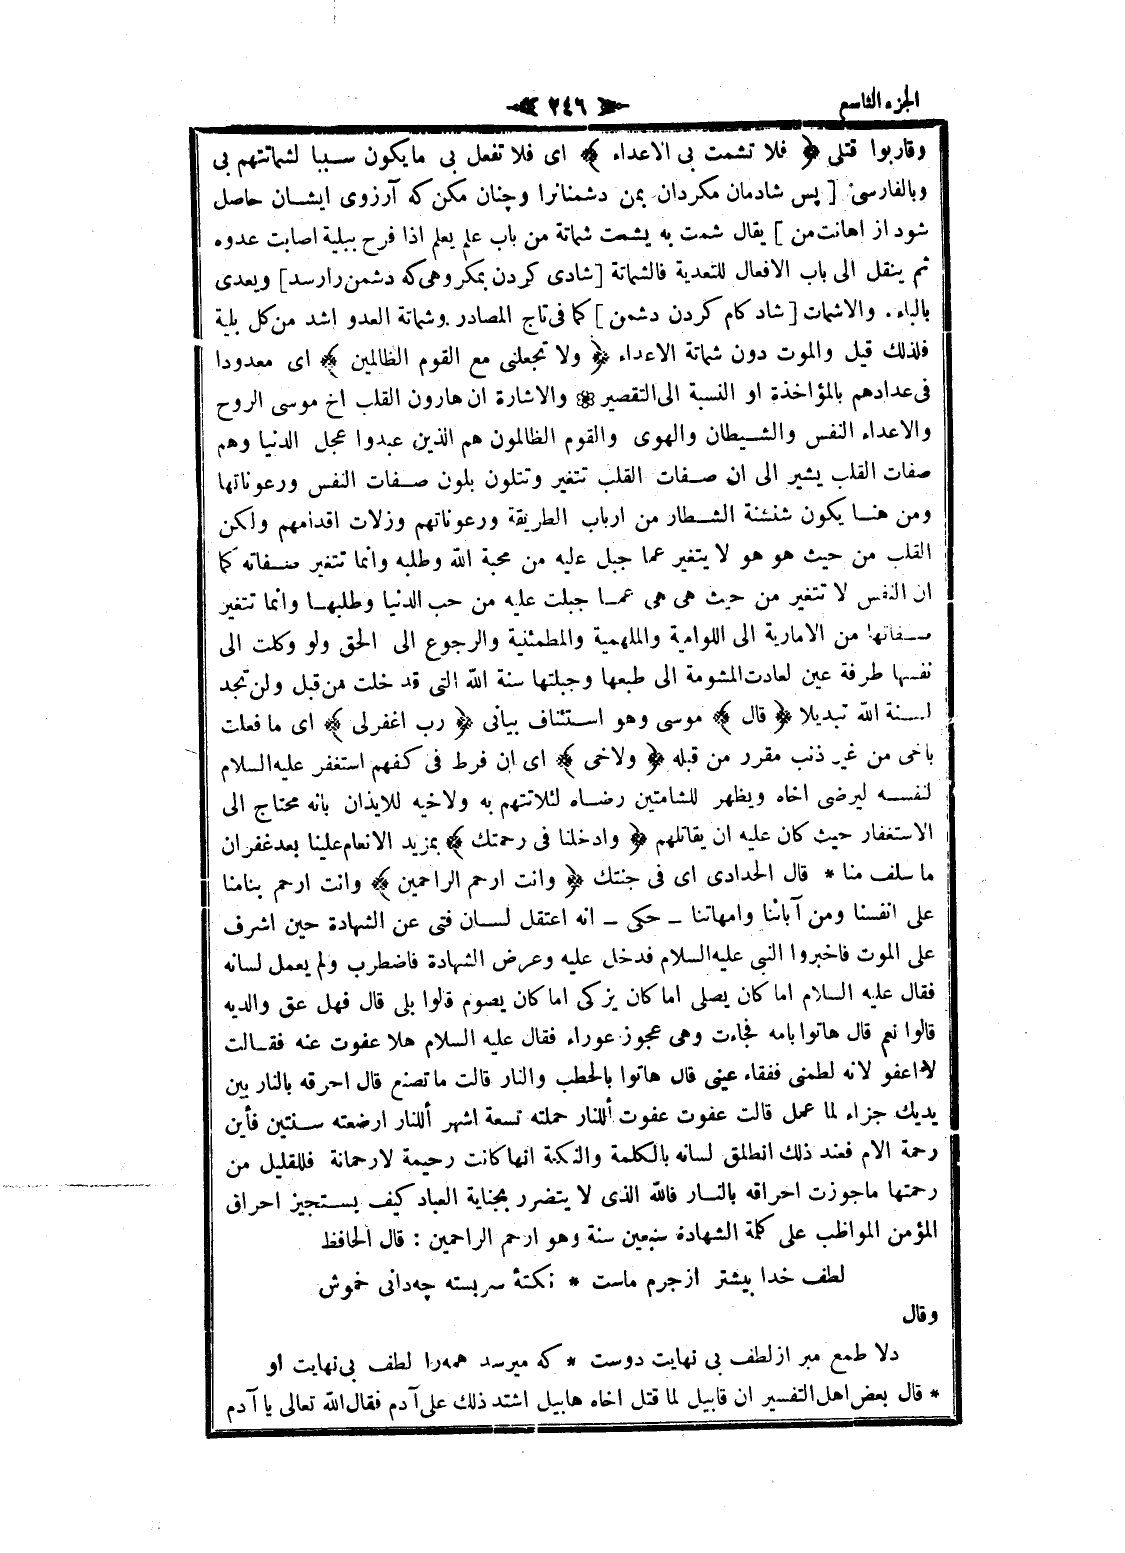 الجزء التاسع
٢٤٦
وقاربوا قتلى ﴿ فلا تشمت بى الاعداء ﴾ اى فلا تفعل بى مايكون سببا لشماتتهم بى
وبالفارسى: [ پس شادمان مكردان بمن دشمنانرا وچنان مكن كه آرزوى ايشان حاصل
شود از اهانت من ] يقال شمت به يشمت شماتة من باب علم يعلم اذا فرح ببلية اصابت عدوه
ثم ينقل الى باب الافعال للتعدية فالشماتة [شادى كردن بمكروهى كه دشمن رارسد] ويعدى
بالباء . والاشمات [شاد كام كردن دشمن] كما فى تاج المصادر وشماتة العدو اشد من كل بلية
فلذلك قيل والموت دون شماتة الاعداء ﴿ ولا تجعلنى مع القوم الظالمين ﴾ اى معدودا
فى عدادهم بالمؤاخذة او النسبة الى التقصير * والاشارة ان هارون القلب اخ موسى الروح
والاعداء النفس والشيطان والهوى والقوم الظالمون هم الذين عبدوا عجل الدنيا وهم
صفات القلب يشير الى ان صفات القلب تتغير وتتلون بلون صفات النفس ورعوناتها
ومن هنا يكون شنشنة الشطار من ارباب الطريقة ورعوناتهم وزلات اقدامهم ولكن
القلب من حيث هو هو لا يتغير عما جبل عليه من محبة الله وطلبه وانما تتغير صفاته كما
ان النفس لا تتغير من حيث هى هى عما جبلت عليه من حب الدنيا وطلبها وانما تتغير
صفاتها من الامارية الى اللوامية والملهمية والمطمئنية والرجوع الى الحق ولو وكلت الى
نفسها طرفة عين لعادت المشومة الى طبعها وجبلتها سنة الله التى قد خلت من قبل ولن تجد
لسنة الله تبديلا ﴿ قال ﴾ موسى وهو استئناف بيانى ﴿ رب اغفرلى ﴾ اى ما فعلت
باخى من غير ذنب مقرر من قبله ﴿ ولاخى ﴾ اى ان فرط فى كفهم استغفر عليه السلام
لنفسه ليرضى اخاه ويظهر للشامتين رضاه لئلاتتهم به ولاخيه للايذان بانه محتاج الى
الاستغفار حيث كان عليه ان يقاتلهم ﴿ وادخلنا فى رحمتك ﴾ بمزيد الانعام علينا بعد غفران
ما سلف منا * قال الحدادى اى فى جنتك ﴿ وانت ارحم الراحمين ﴾ وانت ارحم بنامنا
على انفسنا ومن آبائنا وامهاتنا ـ حكى ـ انه اعتقل لسان فتى عن الشهادة حين اشرف
على الموت فاخبروا النبى عليه السلام فدخل عليه وعرض الشهادة فاضطرب ولم يعمل لسانه
فقال عليه السلام اما كان يصلى اما كان يزكى اما كان يصوم قالوا بلى قال فهل عق والديه
قالوا نعم قال هاتوا بامه فجاءت وهى عجوز عوراء فقال عليه السلام هلا عفوت عنه فقالت
لا اعفو لانه لطمنى ففقاء عينى قال هاتوا بالحطب والنار قالت ما تصنع قال احرقه بالنار بين
يديك جزاء لما عمل قالت عفوت عفوت أللنار حملته تسعة اشهر أللنار ارضعته سنتين فأين
رحمة الام فعند ذلك انطلق لسانه بالكلمة والنكتة انها كانت رحيمة لارحمانة فللقليل من
رحمتها ماجوزت احراقه بالنار فالله الذى لا يتضرر بجناية العباد كيف يستجيز احراق
المؤمن المواظب على كلمة الشهادة سبعين سنة وهو ارحم الراحمين : قال الحافظ
لطف خدا بيشتر ازجرم ماست * نكتۀ سر بسته چه دانى خموش
وقال
دلا طمع مبر از لطف بى نهايت دوست * كه ميرسد همه را لطف بى نهايت او
* قال بعض اهل التفسير ان قابيل لما قتل اخاه هابيل اشتد ذلك على آدم فقال الله تعالى يا آدم